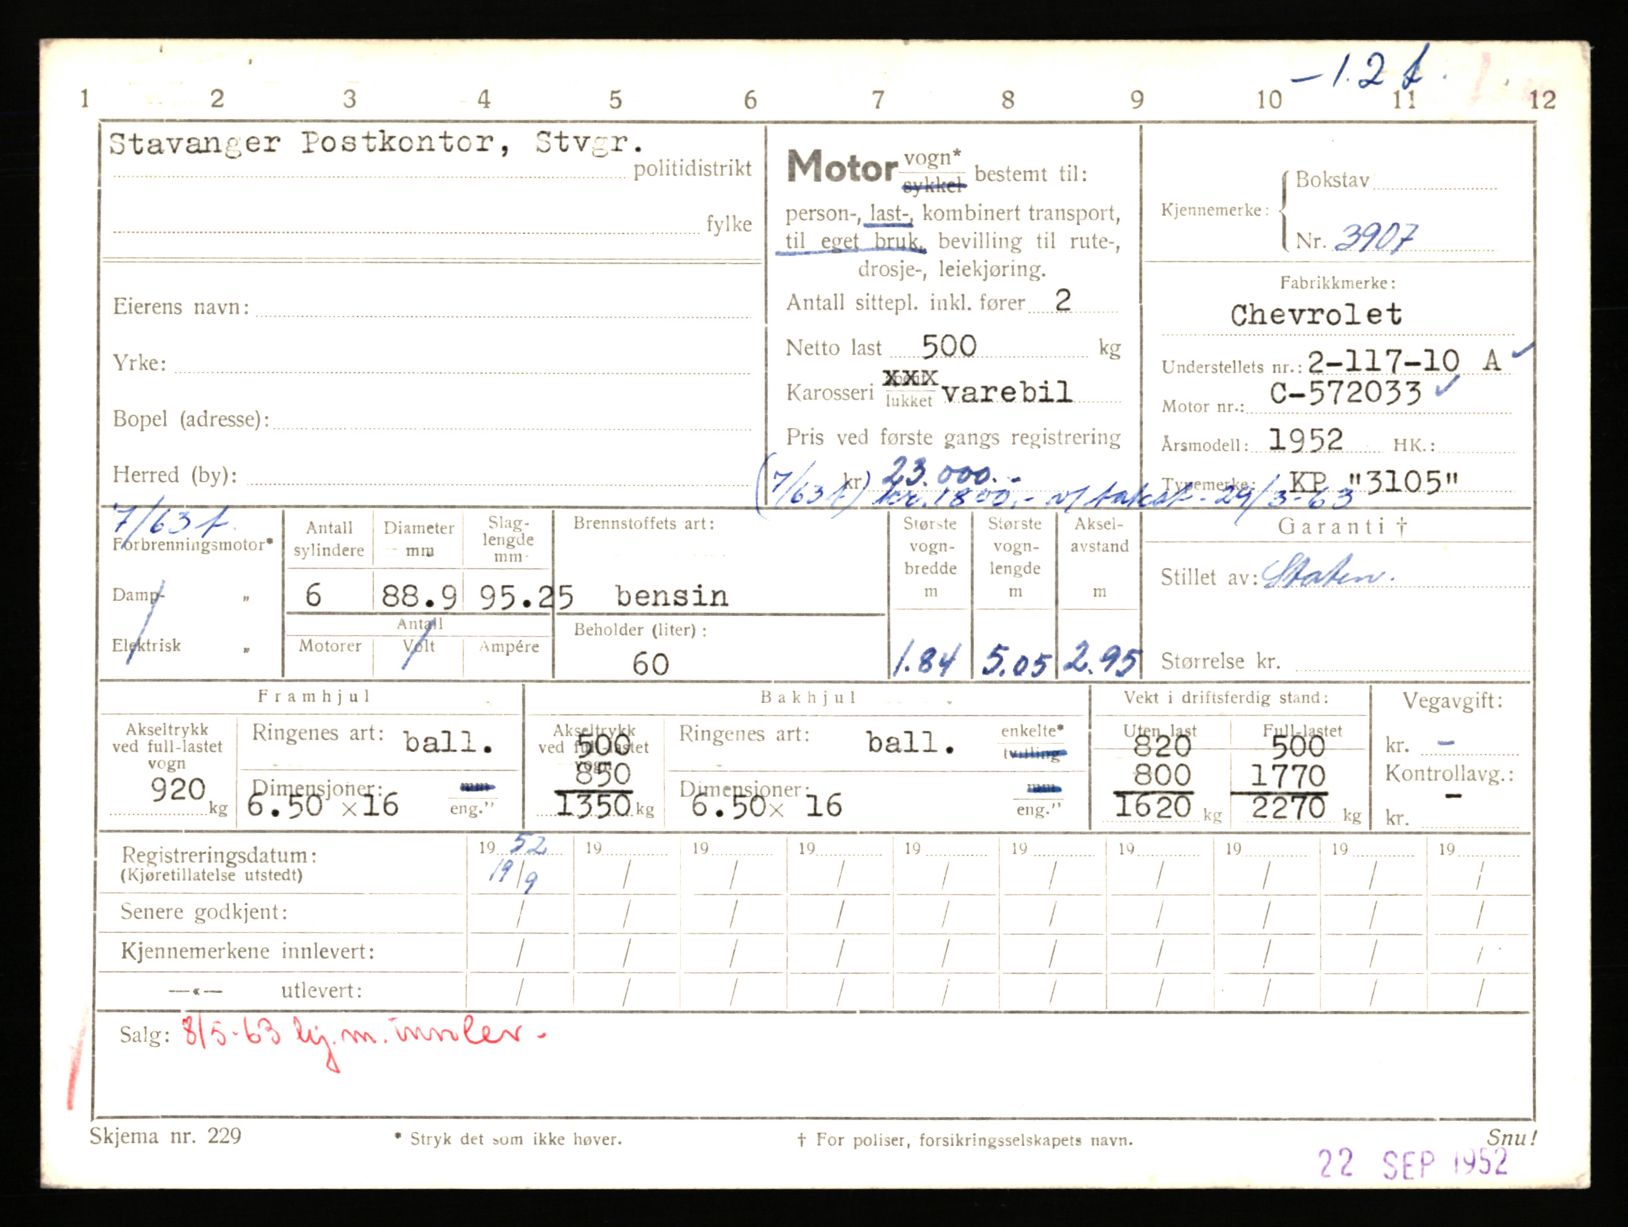 -1.2 t.
1 2 3 4 5 6 7 8 9 10 11 12
Stavanger Postkontor, Stvgr.
politidistrikt
fylke
Eierens navn:
Yrke:
Bopel (adresse):
Herred (by):
Motor vogn* sykkel bestemt til:
person-, last-, kombinert transport,
til eget bruk, bevilling til rute-,
drosje-, leiekjøring.
Antall sittepl. inkl. fører 2
Netto last 500 kg
Karosseri xxx lukket varebil
Pris ved første gangs registrering
kr) 23.000.-
(7/63 t) kr. 1800.- v/ takst - 29/3-63
Kjennemerke: Bokstav
Nr. 3907
Fabrikkmerke:
Chevrolet
Understellets nr.: 2-117-10 A
Motor nr.: C-572033
Årsmodell: 1952 HK.:
Typemerke: KP "3105"
7/63 t.
Forbrenningsmotor*
Damp- "
Elektrisk "
Antall sylindere
Diameter mm
Slag-lengde mm
6 88.9 95.25
Antall
Motorer Volt Ampére
Brennstoffets art:
bensin
Beholder (liter):
60
Største vogn-bredde m
Største vogn-lengde m
Aksel-avstand m
1.84 5.05 2.95
Garanti †
Stillet av: Staten.
Størrelse kr.
Framhjul
Akseltrykk ved full-lastet vogn
920 kg
Ringenes art: ball.
Dimensjoner: mm
6.50 × 16 eng."
Bakhjul
Akseltrykk ved full-lastet vogn
500
850
1350 kg
Ringenes art: ball. enkelte*
tvilling
Dimensjoner: mm
6.50 × 16 eng."
Vekt i driftsferdig stand:
Uten last Full-lastet
820 500
800 1770
1620 kg 2270 kg
Vegavgift:
kr. -
Kontrollavg.:
kr. -
Registreringsdatum:
(Kjøretillatelse utstedt)
19 52 19 19 19 19 19 19 19 19 19
19/9 / / / / / / / / /
Senere godkjent: / / / / / / / / / /
Kjennemerkene innlevert: / / / / / / / / / /
—«— utlevert: / / / / / / / / / /
Salg: 8/5-63 kj.m. innlev.
Skjema nr. 229
* Stryk det som ikke høver.
† For poliser, forsikringsselskapets navn.
Snu!
22 SEP 1952